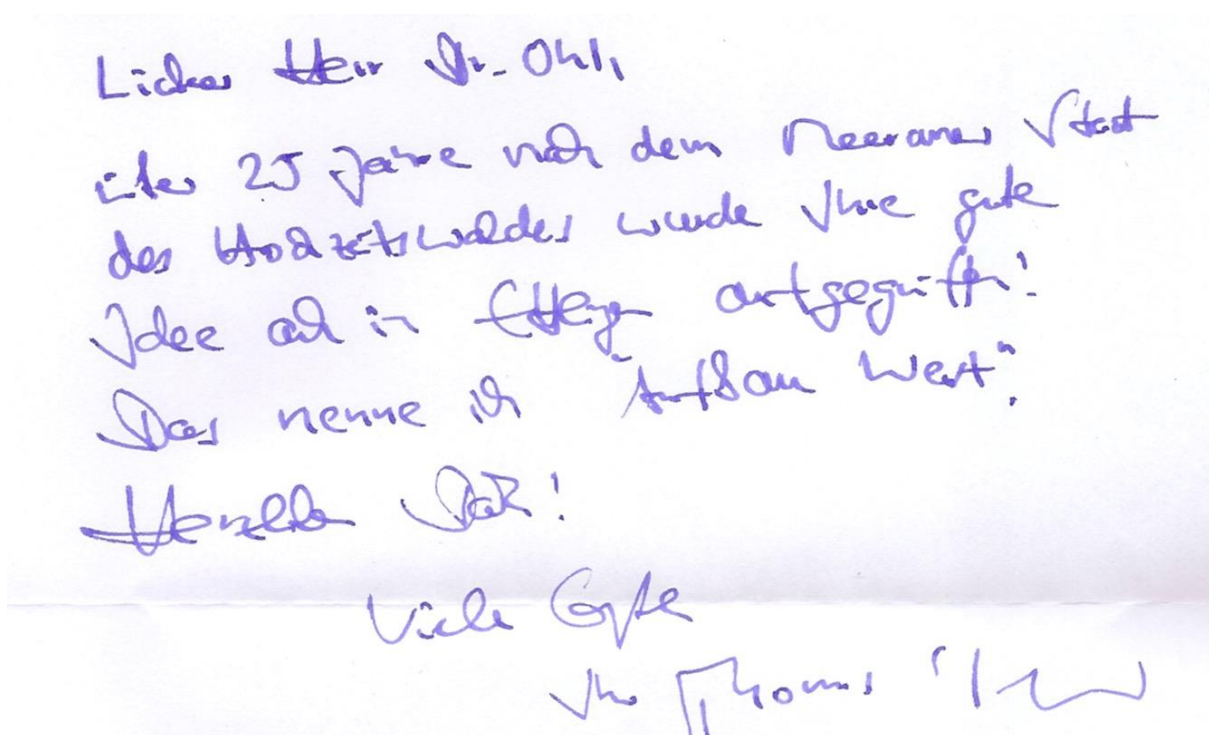 Lieber Herr Dr. Ohly,
über 25 Jahre nach dem Meeraner Start
des Hochzeitswaldes wurde Ihre gute
Idee auch in aufgegriffen!
Das nenne ich "Aufbau West".
Herzlichen Dank!
Viele Grüße
Ihr Thomas